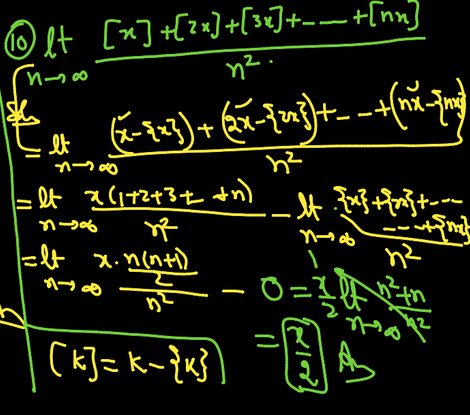 ⑩ lt n→∞ [x]+[2x]+[3x]+-----+[nx] / n².
Sol
= lt n→∞ (x-{x})+(2x-{2x})+---+(nx-{nx}) / n²
= lt n→∞ x(1+2+3+--+n) / n² - lt n→∞ {x}+{2x}+---- --+{nx} / n²
= lt n→∞ x. n(n+1)/2 / n² - 0 = x/2 lt n→∞ n²+n / n²
[K] = K-{K} = x/2 Ans